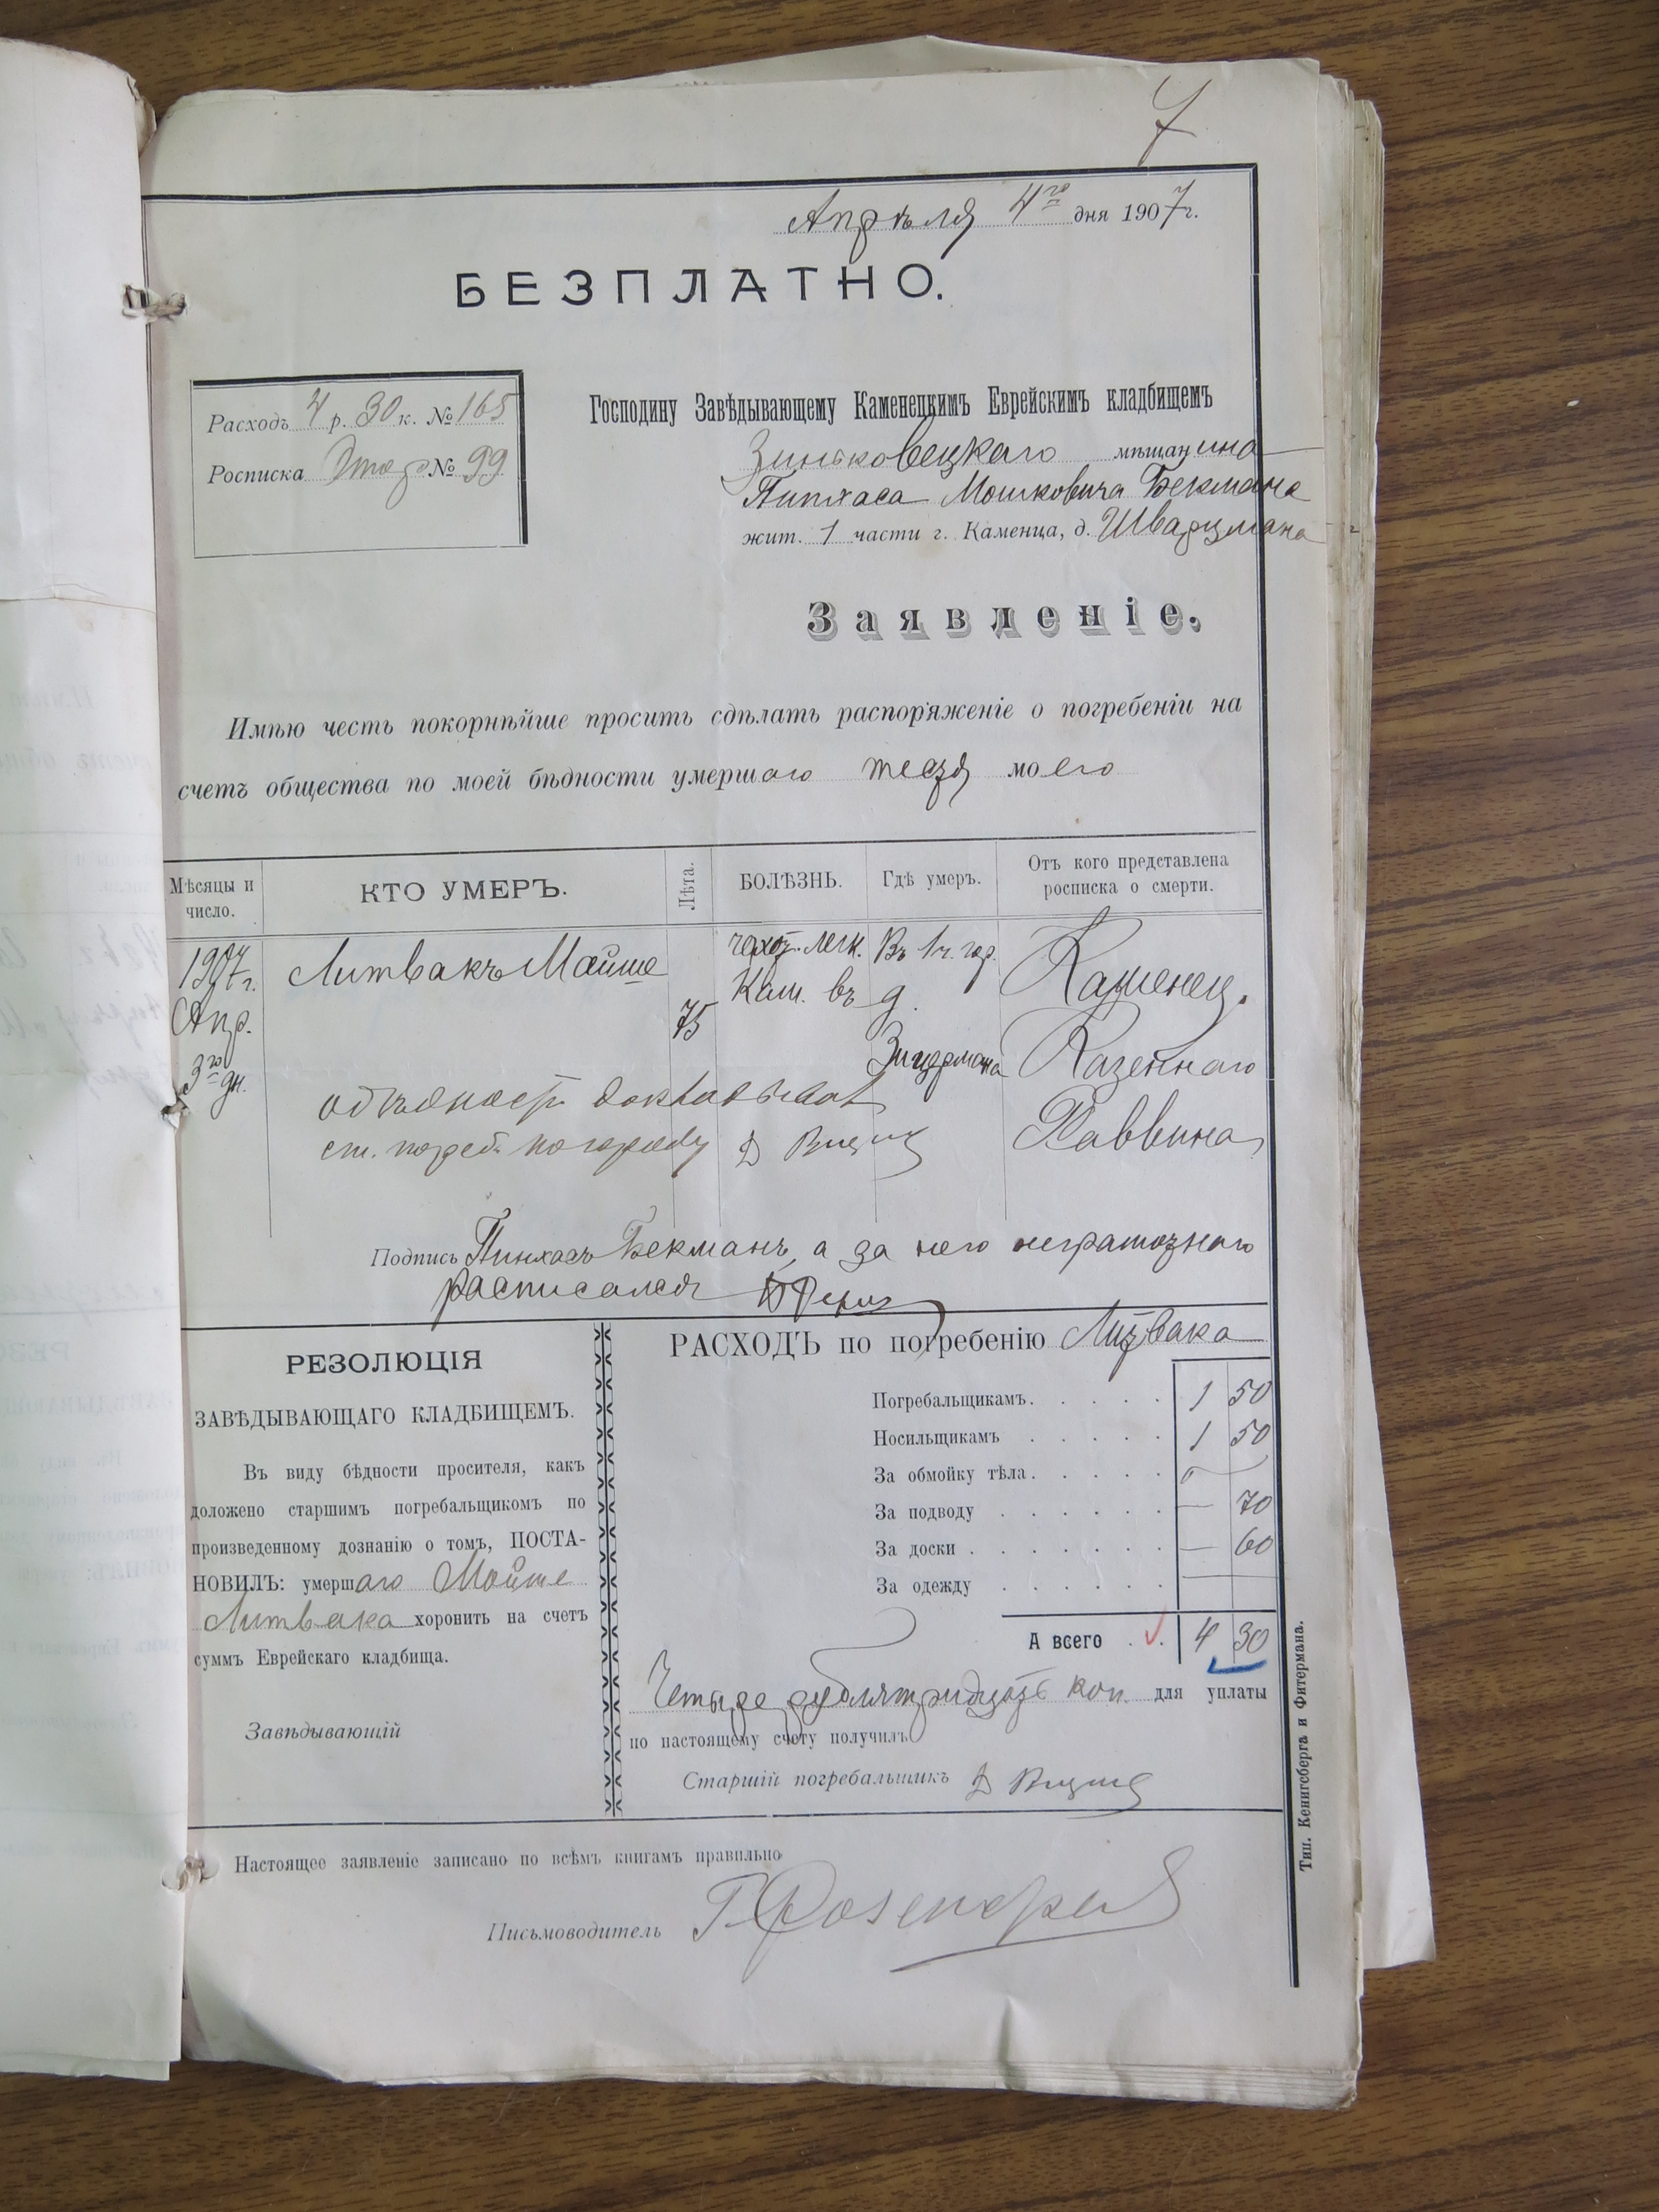 7
Апрѣля 4го дня 1907 г.
БЕЗПЛАТНО.
Расходъ 4 р. 30 к. № 165
Росписка № 99
Господину Завѣдывающему Каменецкимъ Еврейскимъ кладбищемъ
Зиньковецкаго мѣщанина
Пинхаса Мошковича Бекмана
жит. 1 части г. Каменца, д. Шварцмана
Заявленіе.
Имѣю честь покорнѣйше просить сдѣлать распоряженіе о погребеніи на
счетъ общества по моей бѣдности умершаго тестя моего
Мѣсяцы и число.
КТО УМЕРЪ.
Лѣта.
БОЛѢЗНЬ.
Гдѣ умеръ.
Отъ кого представлена росписка о смерти.
1907 г. Апр. 3го дн.
Литвакъ Мойше
75
чахот. легк.
Въ 1 ч. гор. Кам. въ д. Зицермана
Каменец. Казеннаго Раввина
о бѣдности докладывает
ст. погреб. по городу
Подпись Пинхасъ Бекманъ, а за него неграмотнаго
расписался
РЕЗОЛЮЦІЯ
ЗАВѢДЫВАЮЩАГО КЛАДБИЩЕМЪ.
Въ виду бѣдности просителя, какъ
доложено старшимъ погребальщикомъ по
произведенному дознанію о томъ, ПОСТА-
НОВИЛЪ: умершаго Мойше
Литвака хоронить на счетъ
суммъ Еврейскаго кладбища.
Завѣдывающій
РАСХОДЪ по погребенію Литвака
Погребальщикамъ. . . . . 1 50
Носильщикамъ . . . . . 1 50
За обмойку тѣла. . . . .
За подводу . . . . . . — 70
За доски . . . . . . . — 60
За одежду . . . . . .
А всего . . 4 30
Четыре рубля тридцать коп. для уплаты
по настоящему счету получилъ
Старшій погребальщикъ
Настоящее заявленіе записано по всѣмъ книгамъ правильно
Письмоводитель
Тип. Кенигсберга и Фитермана.